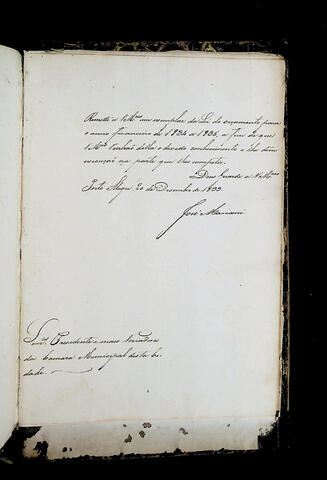 Remetto a V.Mces um exemplar da Lei do orçamento para
o anno financeiro de 1834 a 1835, a fim de que
V.Mces tenhão della o devido conhecimento e lhe dêm
execução na parte que lhes competir.
Deos Guarde a V.Mces
Porto Alegre 20 de Dezembro de 1833.
José Mariani
Snres. Presidente e mais Vereadores
da Camara Municipal desta Ci-
dade.